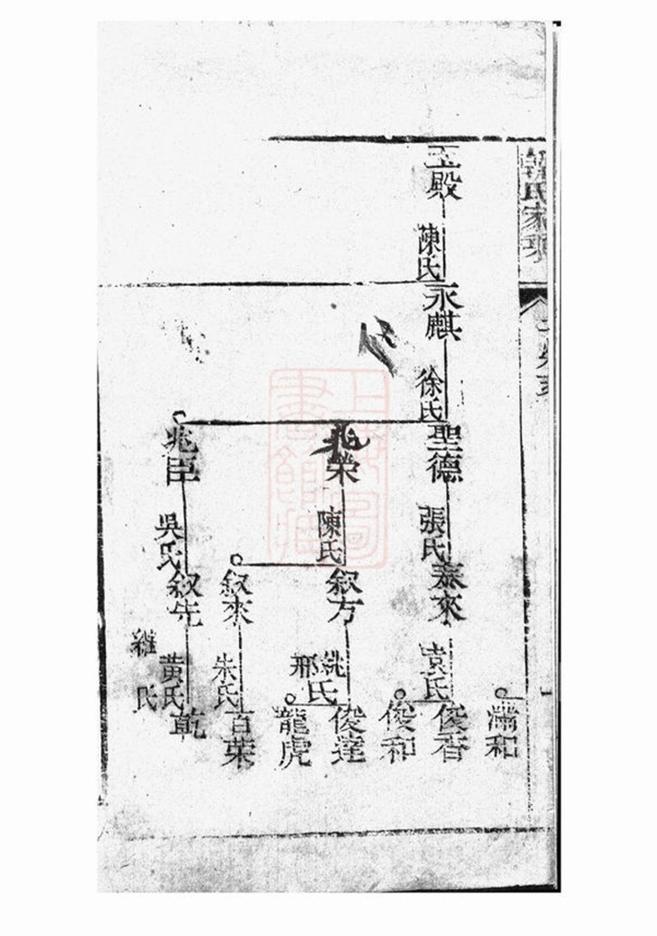 韓氏家乘
滿和
玉殿
陳氏
永麒
徐氏
聖德
張氏
泰來
袁氏
俊香
俊和
兆榮
陳氏
叙方
姚
邢氏
俊達
龍虎
叙來
朱氏
百葉
兆臣
吳氏
叙先
黄氏
乾
氏
上海圖
書館藏